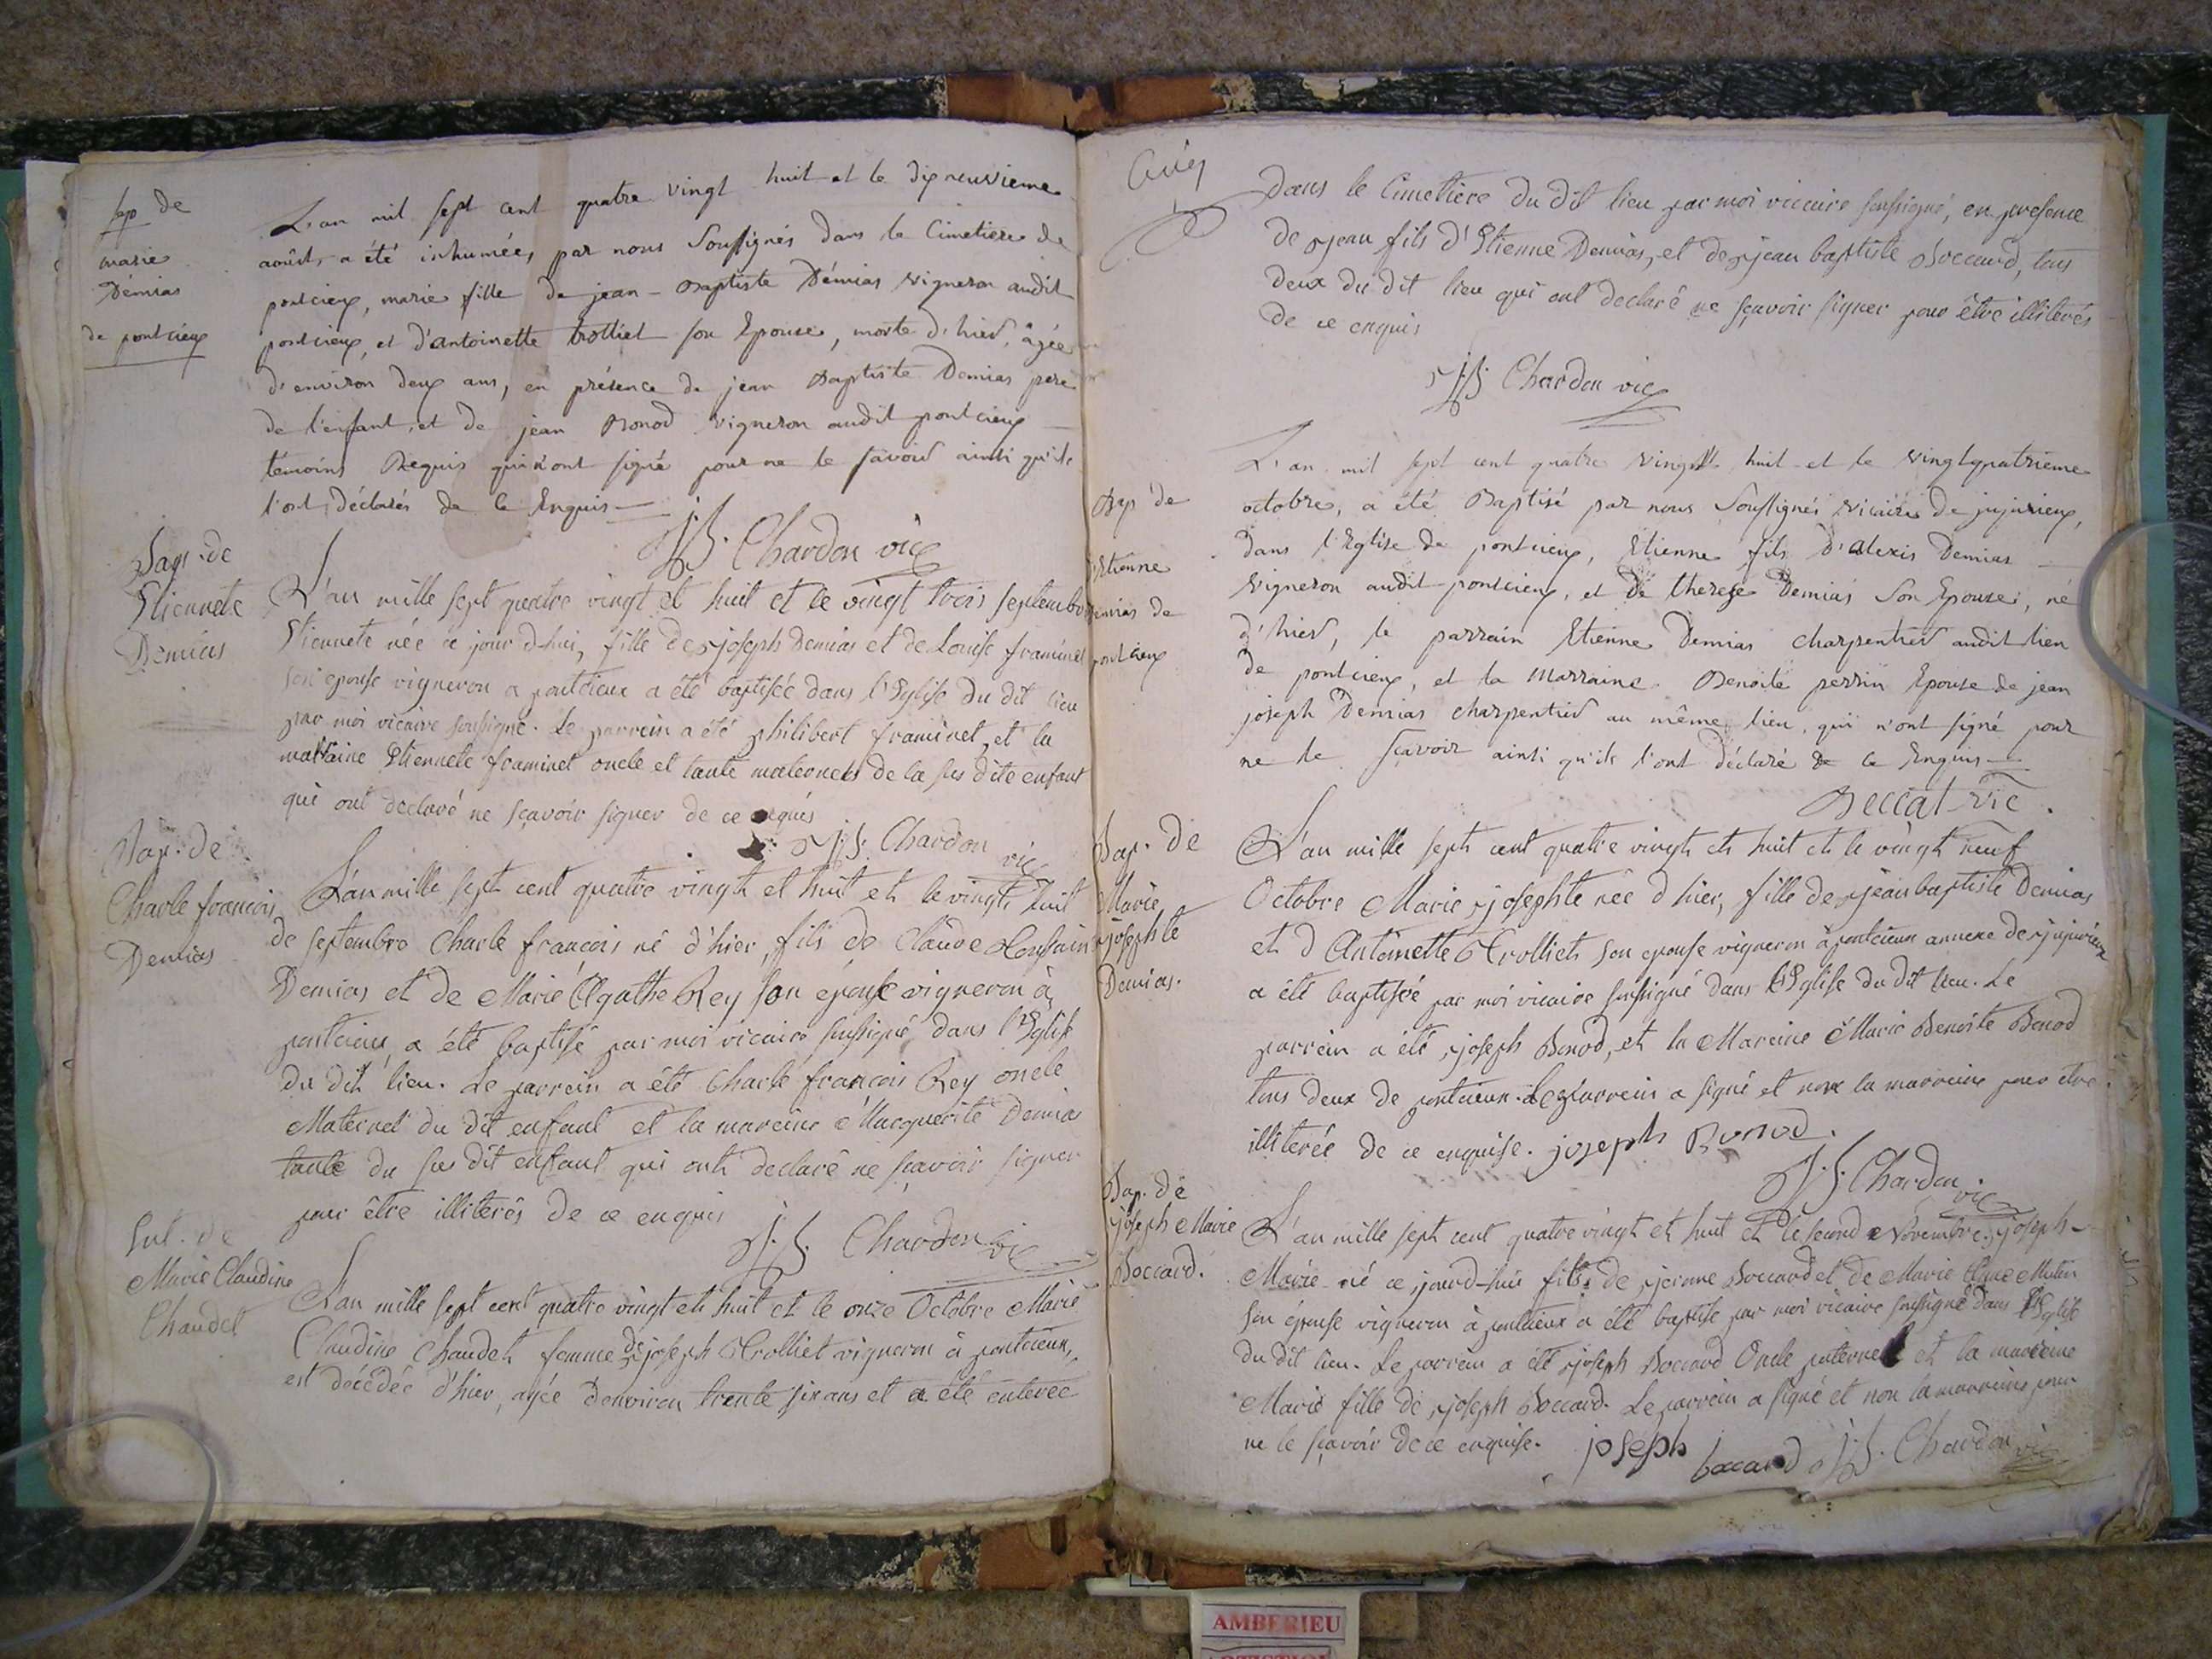 Sep de
marie
Démias
de pontcieux
L'an mil sept cent quatre vingt huit et le dixneuvieme
aoûst, a été inhumée, par nous Soussignés dans le Cimetiere de
pontcieux, marie fille de jean-Baptiste Démias vigneron audit
pontcieux, et d'antoinette trolliet son Epouse, morte d'hier, âgée
d'environ deux ans, en présence de jean Baptiste Demias pere
de l'enfant, et de jean Bonod vigneron audit pontcieux
témoins Requis qui n'ont signé pour ne le savoir ainsi qu'ils
l'ont déclarés de ce Enquis
J:S. Chardon vic
Bap. de
Etiennete
Demias
L'an mille sept quatre vingt et huit et le vingt trois septembre
Etiennete née ce jour d-hui, fille de joseph Demias et de Louise framinet
son epouse vigneron a pontcieux a été baptisée dans l'Eglise du dit lieu
par moi vicaire soussigné. Le parrein a été philibert framinet et la
marraine Etiennete framinet oncle et tante maternels de la sus dite enfant
qui ont declaré ne sçavoir signer de ce requis
J:S. Chardon vic
Bap. de
Charle francois
Demias
L'an mille sept cent quatre vingt et huit et le vingt huit
de septembre Charle françois né d'hier, fils de Claude
Demias et de Marie Agathe Rey son épouse vigneron à
pontcieux, a été baptisé par moi vicaire soussigné dans l'Eglise
du dit lieu. Le parrein a été Charle françois Rey oncle
Maternel du dit enfant et la mareine Marguerite Demias
tante du sus dit enfant qui ont declaré ne sçavoir signer
pour être illiterés de ce enquis
J:S. Chardon vic
Sul. de
Marie Claudine
Chaudet
L'an mille sept cent quatre vingt et huit et le onze Octobre Marie
Claudine Chaudet femme de joseph Trolliet vigneron à pontcieux,
est décédée d'hier, agée denviron trente six ans et a été enterée
Dans le Cimetiere du dit lieu par moi vicaire soussigné, en presence
de jean fils d'Etienne Demias, et de jean baptiste Boccard, tous
deux du dit lieu qui ont declaré ne sçavoir signer pour être illiterés
de ce enquis
J:S. Chardon vic
Bap de
Etienne
Demias de
pontcieux
L'an mil sept cent quatre vingt huit et le vingtquatrieme
octobre, a été Baptisé par nous Soussignés vicaire de jujurieux,
dans l'Eglise de pontcieux, Etienne fils d'alexis Demias
vigneron audit pontcieux, et de therese Demias Son Epouse, né
d'hier, le parrain Etienne Demias charpentier audit lieu
de pontcieux, et la marraine Benoite perrin Epouse de jean
joseph Demias charpentier au même lieu, qui n'ont signé pour
ne le sçavoir ainsi qu'ils l'ont déclaré de ce Enquis
Beccat vic.
Bap. de
Marie
josephte
Demias.
L'an mille sept cent quatre vingt et huit et le vingt neuf
Octobre Marie josephte née d hier, fille de jean baptiste Demias
et d Antoinette Trolliet son epouse vigneron à pontcieux annexe de jujurieux
a été baptisée par moi vicaire soussigné dans l'Eglise du dit lieu. Le
parrein a été joseph Bonod, et la Mareine Marie Benoite Bonod
tous deux de pontcieux. Le parrein a signé et non la marreine pour etre
illiterée de ce enquise. joseph Bonod.
J:S. Chardon vic
Bap. de
joseph Marie
Boccard.
L'an mille sept cent quatre vingt et huit et le second Novembre joseph-
Marie né ce jourd-hui fils de jerome Boccard et de Marie
son épouse vigneron à pontcieux a été baptisé par moi vicaire soussigné dans l'Eglise
du dit lieu. Le parrein a été joseph Boccard Oncle paternel et la mareine
Marie fille de joseph Boccard. Le parrein a signé et non la marreine pour
ne le sçavoir de ce enquise. joseph boccard J:S. Chardon vic
AMBERIEU